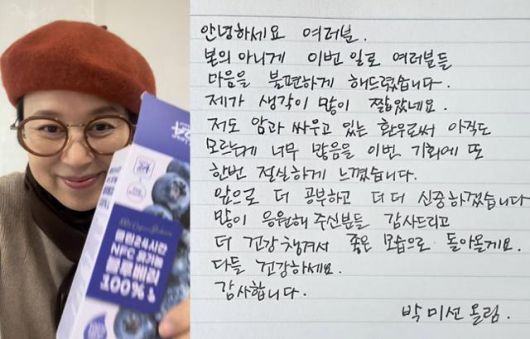 안녕하세요 여러분.
본의 아니게 이번 일로 여러분들
마음을 불편하게 해드렸습니다.
제가 생각이 많이 짧았네요.
저도 암과 싸우고 있는 환우로써 아직도
모르는게 너무 많음을 이번 기회에 또
한번 절실하게 느꼈습니다.
앞으로 더 공부하고 더 더 신중하겠습니다
많이 응원해 주신분들 감사드리고
더 건강 챙겨서 좋은 모습으로 돌아올게요.
다들 건강하세요.
감사합니다.
박미선 올림.
24시간
NFC 유기농
블루베리
100%